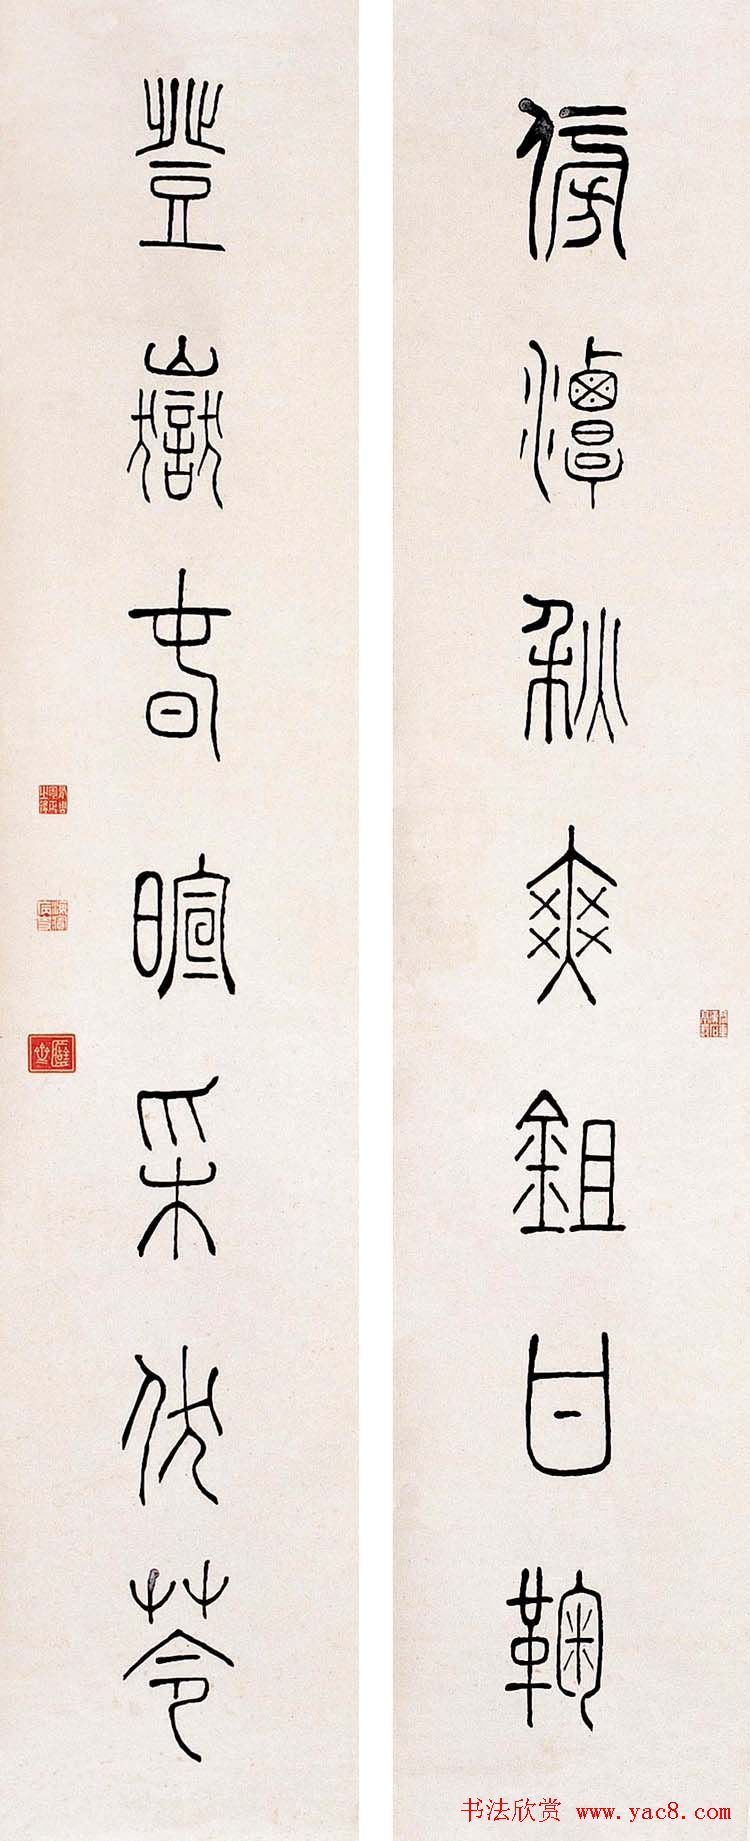 傍潭秋爽鉏甘鞠
登嶽旾暄采伏苓
书法欣赏 www.yac8.com